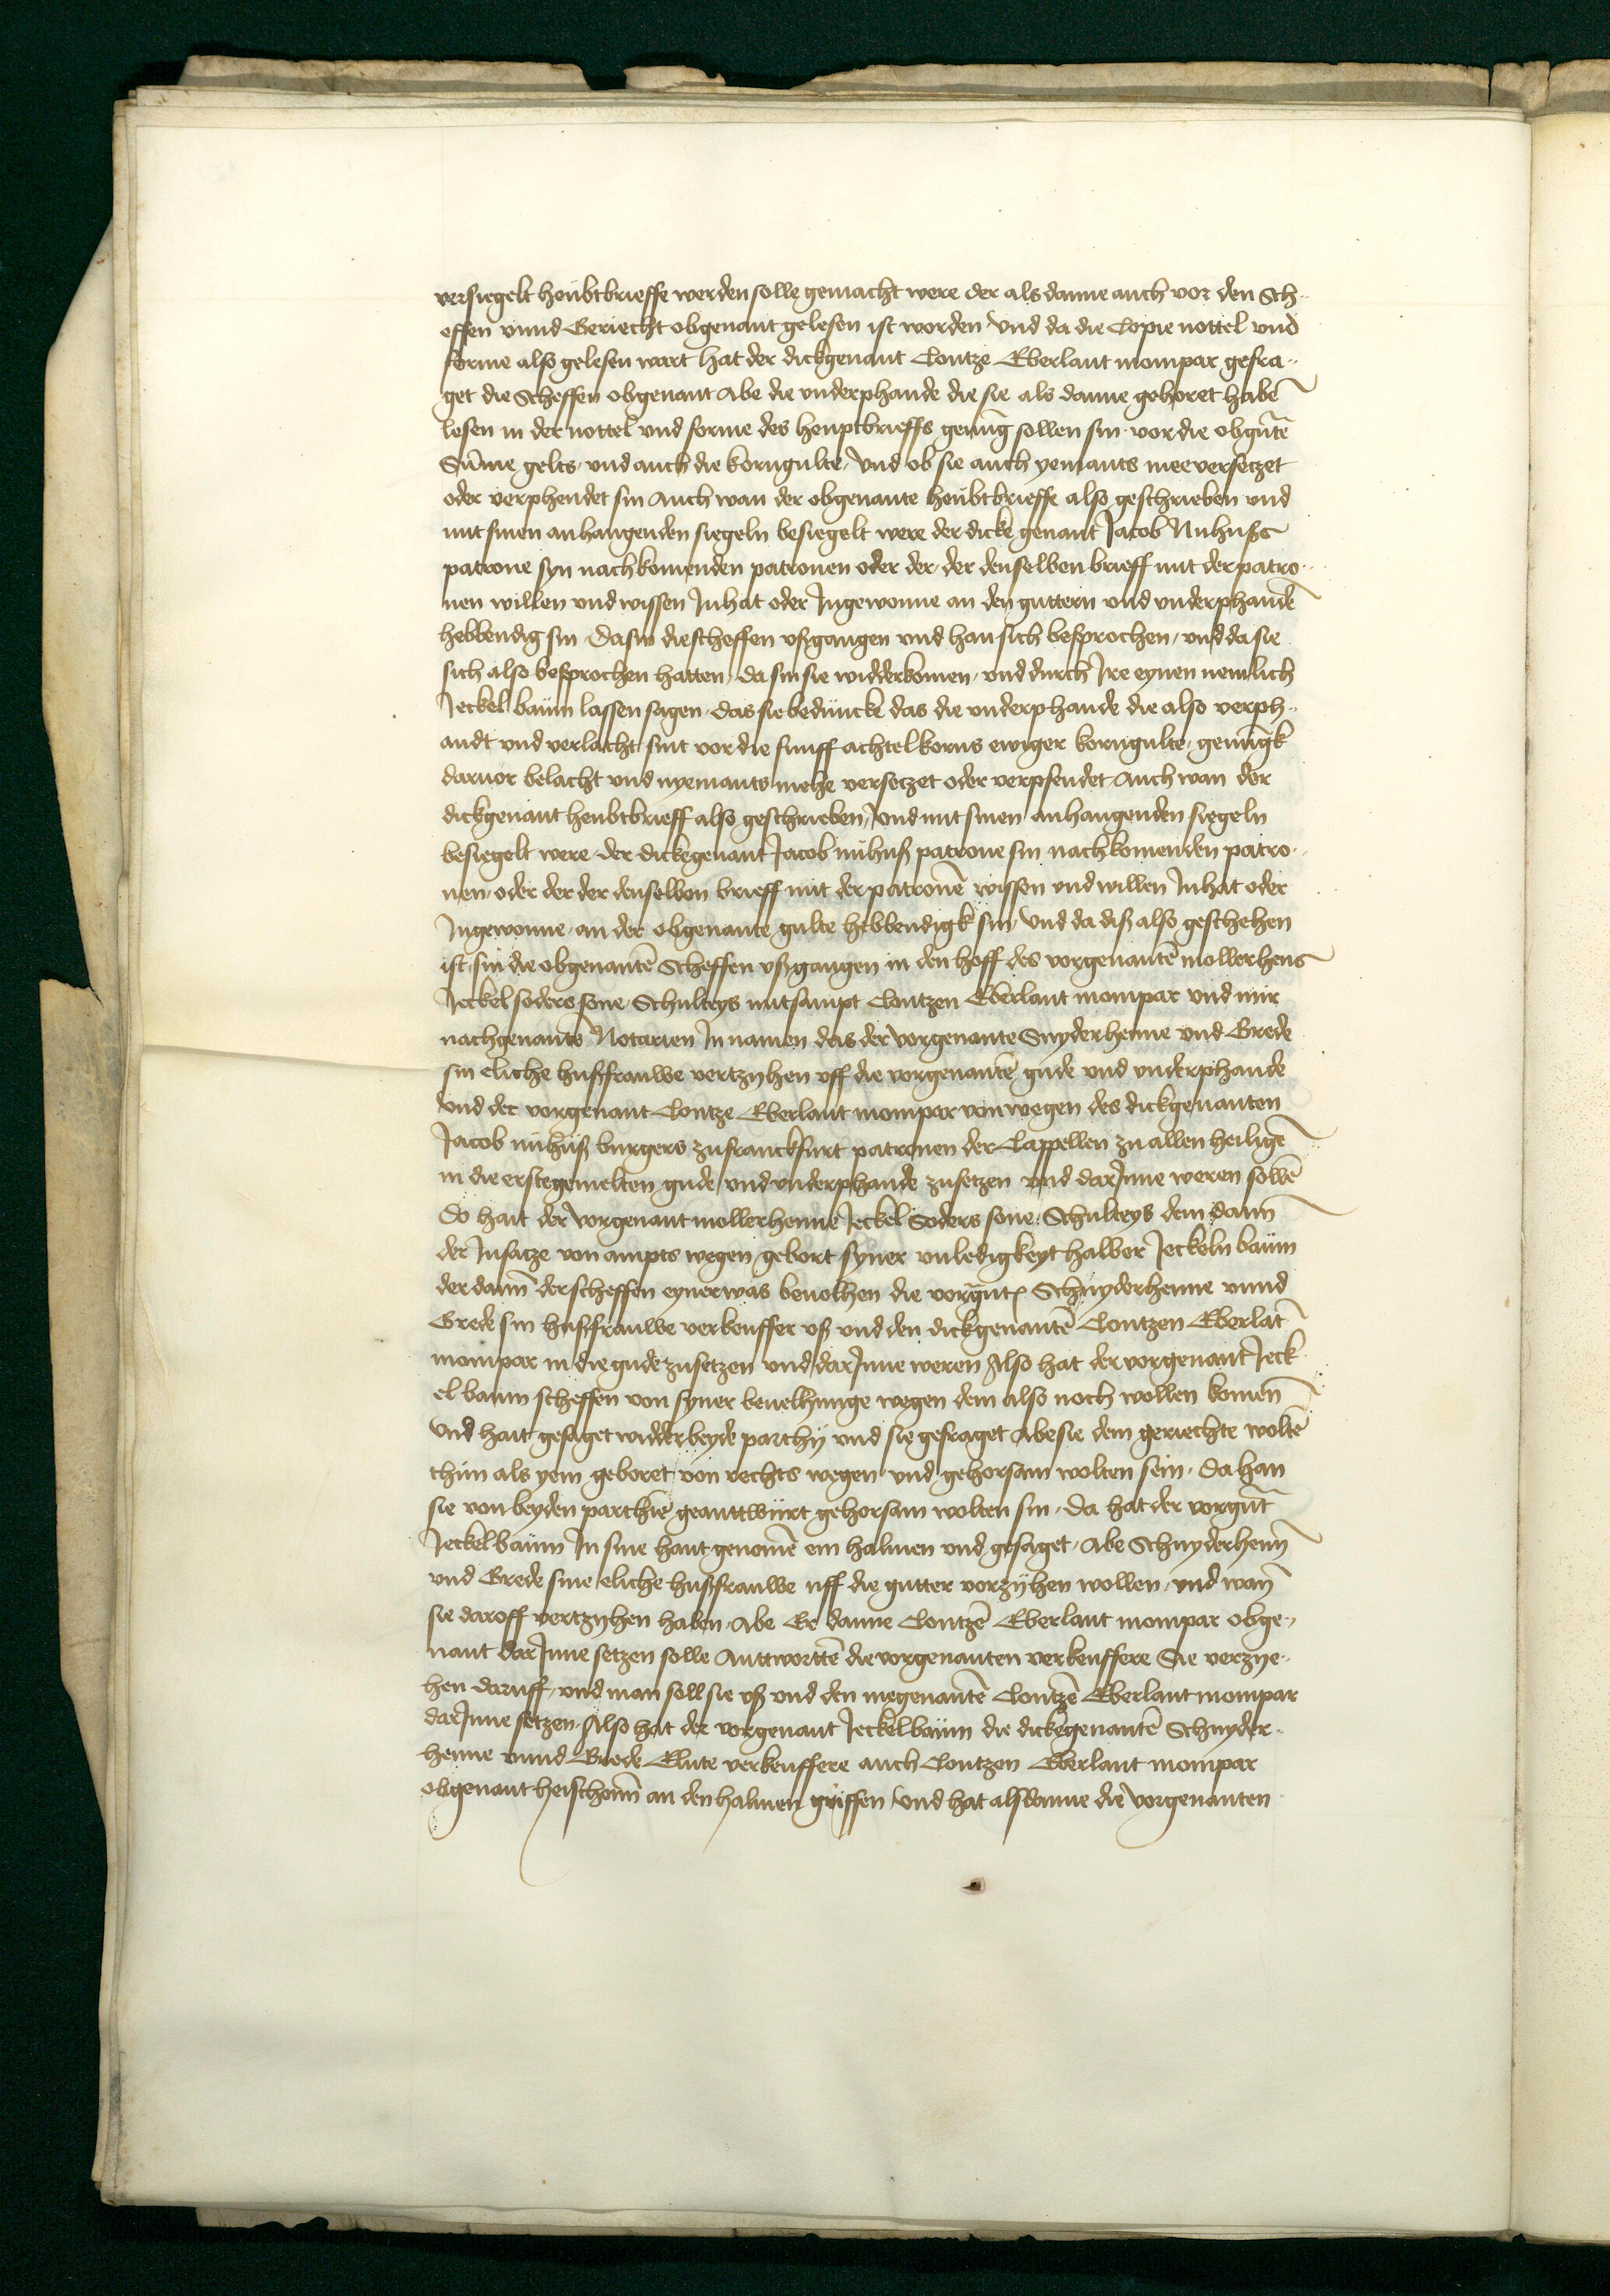 versiegelt heubtbrieffe werden solle gemacht were der als danne auch vor den Sch-
effen vnnd Geriecht obgenant gelesen ist worden Vnd da die Copie nottel vnd
forme also gelesen wart hat der dickgenant Contze Eberlant mompar gefra-
get die Scheffen obgenant Abe die vnderphande die sie als danne gehoret habē
lesen in der nottel vnd forme des heuptbrieffs genug sollen sin vor die obgntē
Sūme gelts vnd auch die korngulte Vnd ob sie auch yemants mee versetzet
oder verphendet sin Auch wan der obgenante heubtbrieffe also geschrieben vnd
mit sinen anhangenden siegeln besiegelt were der dicke genant Jacob Nuhuss
patrone syn nachkomenden patronen oder der der denselben brieff mit der patro-
nen willen vnd wissen Inhat oder Ingewonne an den guttern vnd vnderphandē
hebbendig sin Da sin die scheffen vßgangen vnd han sich besprochen vnd da sie
sich also besprochen hatten Da sin sie widderkomen vnd durch Ire eynen nemlich
Jeckel baum lassen sagen das sie beduncke das die vnderphande die also verph-
andt vnd verlacht sint vor die funff achtel korns ewiger korngulte genugk
daruor belacht vnd nyemants mehe versetzet oder verpfendet Auch wan der
dickgenant heubtbrieff also geschrieben Vnd mit sinen anhangenden siegeln
besiegelt were der dickegenant Jacob nuhuß patrone sin nachkomenden patro-
nen oder der der denselben brieff mit der patronē wissen vnd willen Inhat oder
Ingewonne an der obgenante gulte hebbendigk sin Vnd da diß also geschehen
ist sin die obgenantē Scheffen vßgangen in den hoff des vorgenantē mollerhens
Jeckel soders sone Schulteys mitsampt Contzen Eberlant mompar vnd mir
nachgenantē Notarien In namen das der vorgenante Snyderhenne vnd Grede
sin eliche hußfrauwe vertzyhen vff die vorgenantē gude vnd vnderphande
Vnd der vorgenant Contze Eberlant mompar von wegen des dickgenanten
Jacob nuhuß burgers zu franckfurt patronen der Cappellen zu allen heiligē
in die erstegemelten gude vnd vnderphande zu setzen vnd dar Inne weren sollē
Do hait der vorgenant mollerhenne Jeckel Soders sone Schulteys dem dann
der Insatze von ampts wegen gebort syner vnledigkeyt halber Jeckeln baum
der dann der scheffen eyner was beuolhen die vorgnt Schnyderhenne vnnd
Grede sin hußfrauwe verkeuffer vß vnd den dickgenantē Contzen Eberlāt
mompar in die gude zu setzen vnd dar Inne weren Also hat der vorgenant Jeck
el baum scheffen von syner beuelhunge wegen dem also noch wollen komen
Vnd hait gesaget widder beyde parthy vnd sie gefraget Abe sie dem geriechte woltē
thun als yem geboret von rechts wegen vnd gehorsam wolten sein Da han
sie von beyden parthie geanttwurt gehorsam wolten sin Da hat der vorgnt
Jeckel baum In sine hant genomē ein halmen vnd gesaget Abe Schnyderhenn
vnd Grede sine eliche hußfrauwe uff die gutter verzyhen wollen vnd wan
sie daroff vertzyhen haben Abe Er danne Contzē Eberlant mompar obge-
nant dar Inne setzen solle Anttwortē die vorgenanten verkeuffere Sie verzye-
hen daruff vnd man soll sie vß vnd den megenantē Contzē Eberlant mompar
dar Inne setzen Also hat der vorgenant Jeckelbaum die dickegenantē Schnyder-
henne vnnd Grede Elute verkeuffere auch Contzen Eberlant mompar
obgenant heischenn an den halmen griffen Vnd hat alsdanne die vorgenanten